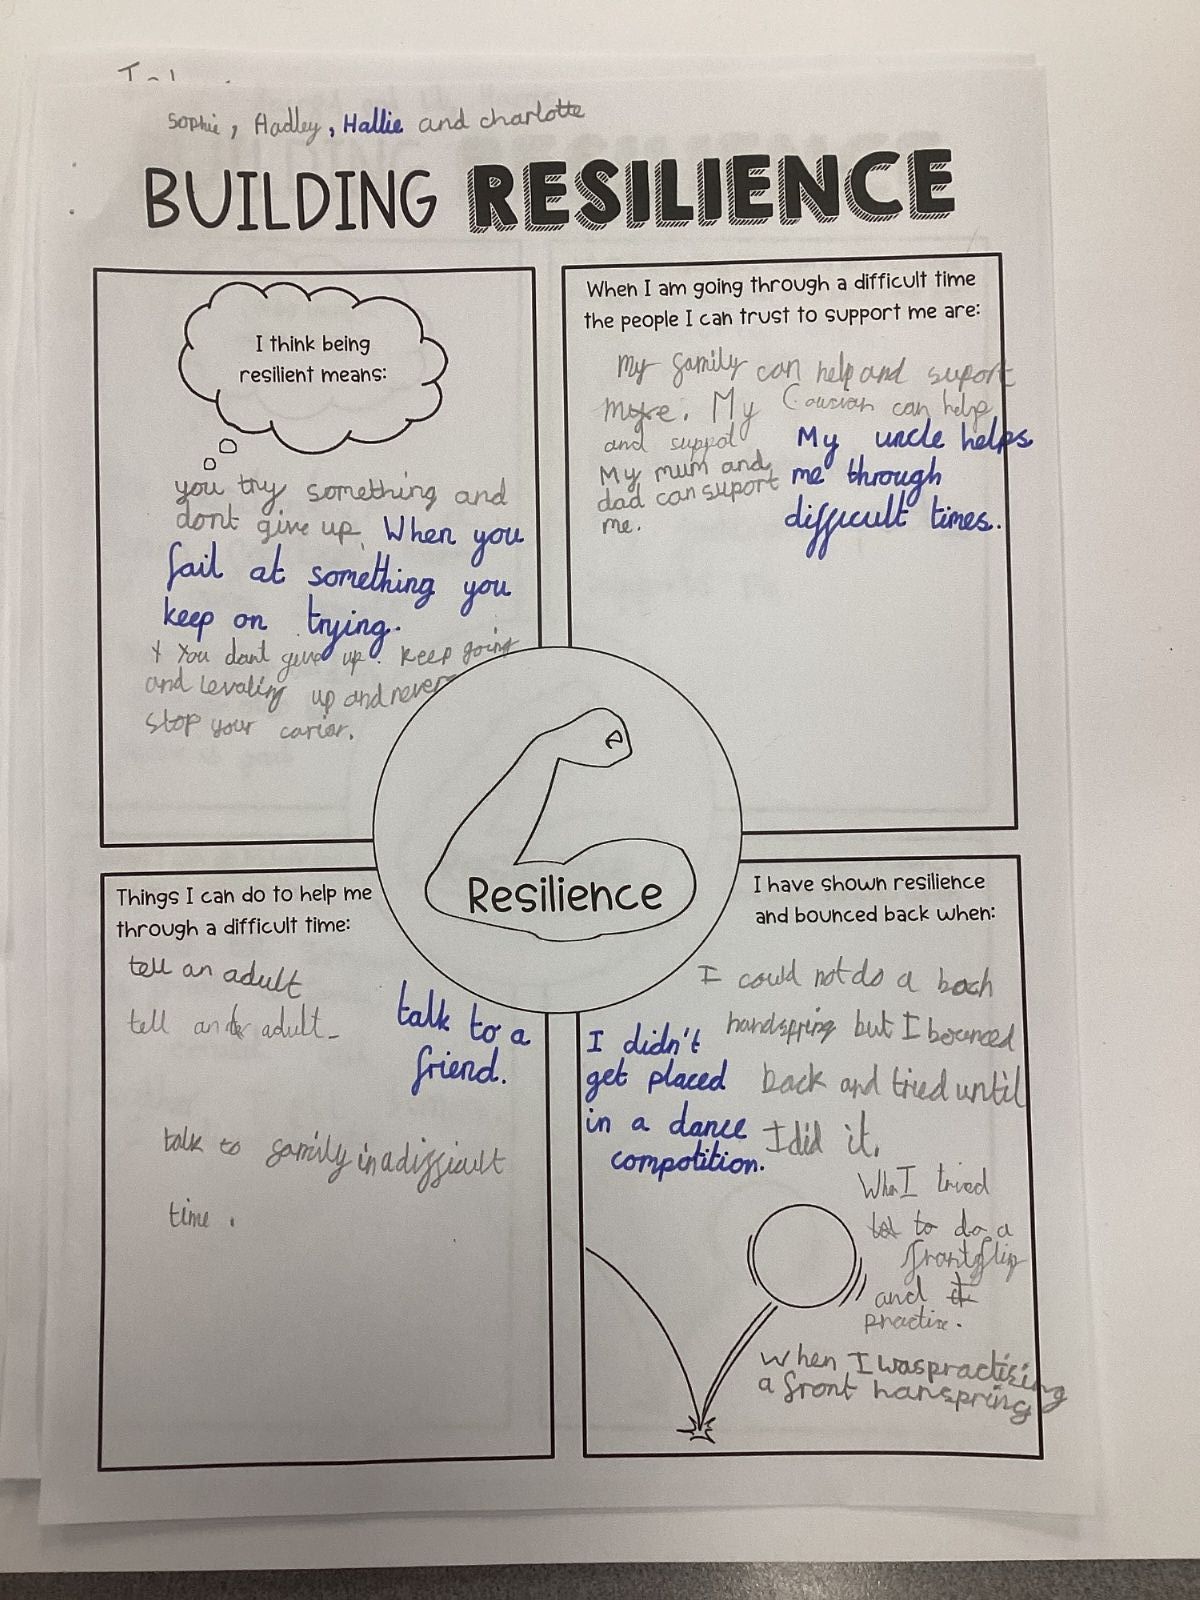 Sophie, Hadley, Hallie and charlotte
BUILDING RESILIENCE
I think being
resilient means:
you try something and
dont give up. When you
fail at something you
keep on trying.
You dont give up. Keep going
and levaling up and never
stop your carier.
When I am going through a difficult time
the people I can trust to support me are:
My family can help and suport
me. My can help
and suppot
My mum and
dad can suport
me.
My uncle helps
me through
difficult times.
Resilience
Things I can do to help me
through a difficult time:
tell an adult
tell an adult
talk to a
friend.
talk to family in a difficult
time.
I have shown resilience
and bounced back when:
I could not do a back
handspring but I bounced
back and tried until
I did it.
I didn't
get placed
in a dance
compotition.
When I tried
to do a
frontflip
and
practise.
When I was practising
a front hanspring